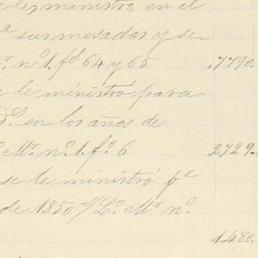 le ministro en el
sus mesadas y se-
n.º 1. f.º 64 y 65 .7790.
le ministró para
en los años de
M.ª n.º 1. f.º 6 2729.
se le ministró p.ª
de 1850 L.º M.ª n.º
1.480.